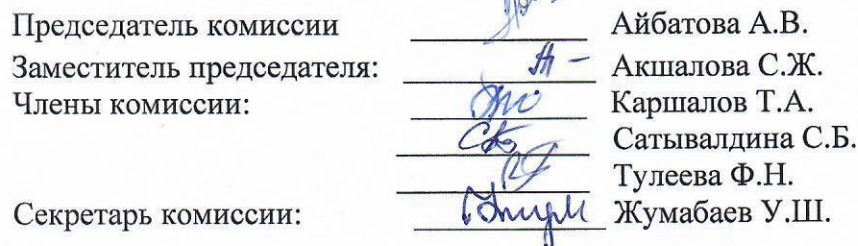 Председатель комиссии Айбатова А.В.
Заместитель председателя: Акшалова С.Ж.
Члены комиссии: Каршалов Т.А.
Сатывалдина С.Б.
Тулеева Ф.Н.
Секретарь комиссии: Жумабаев У.Ш.